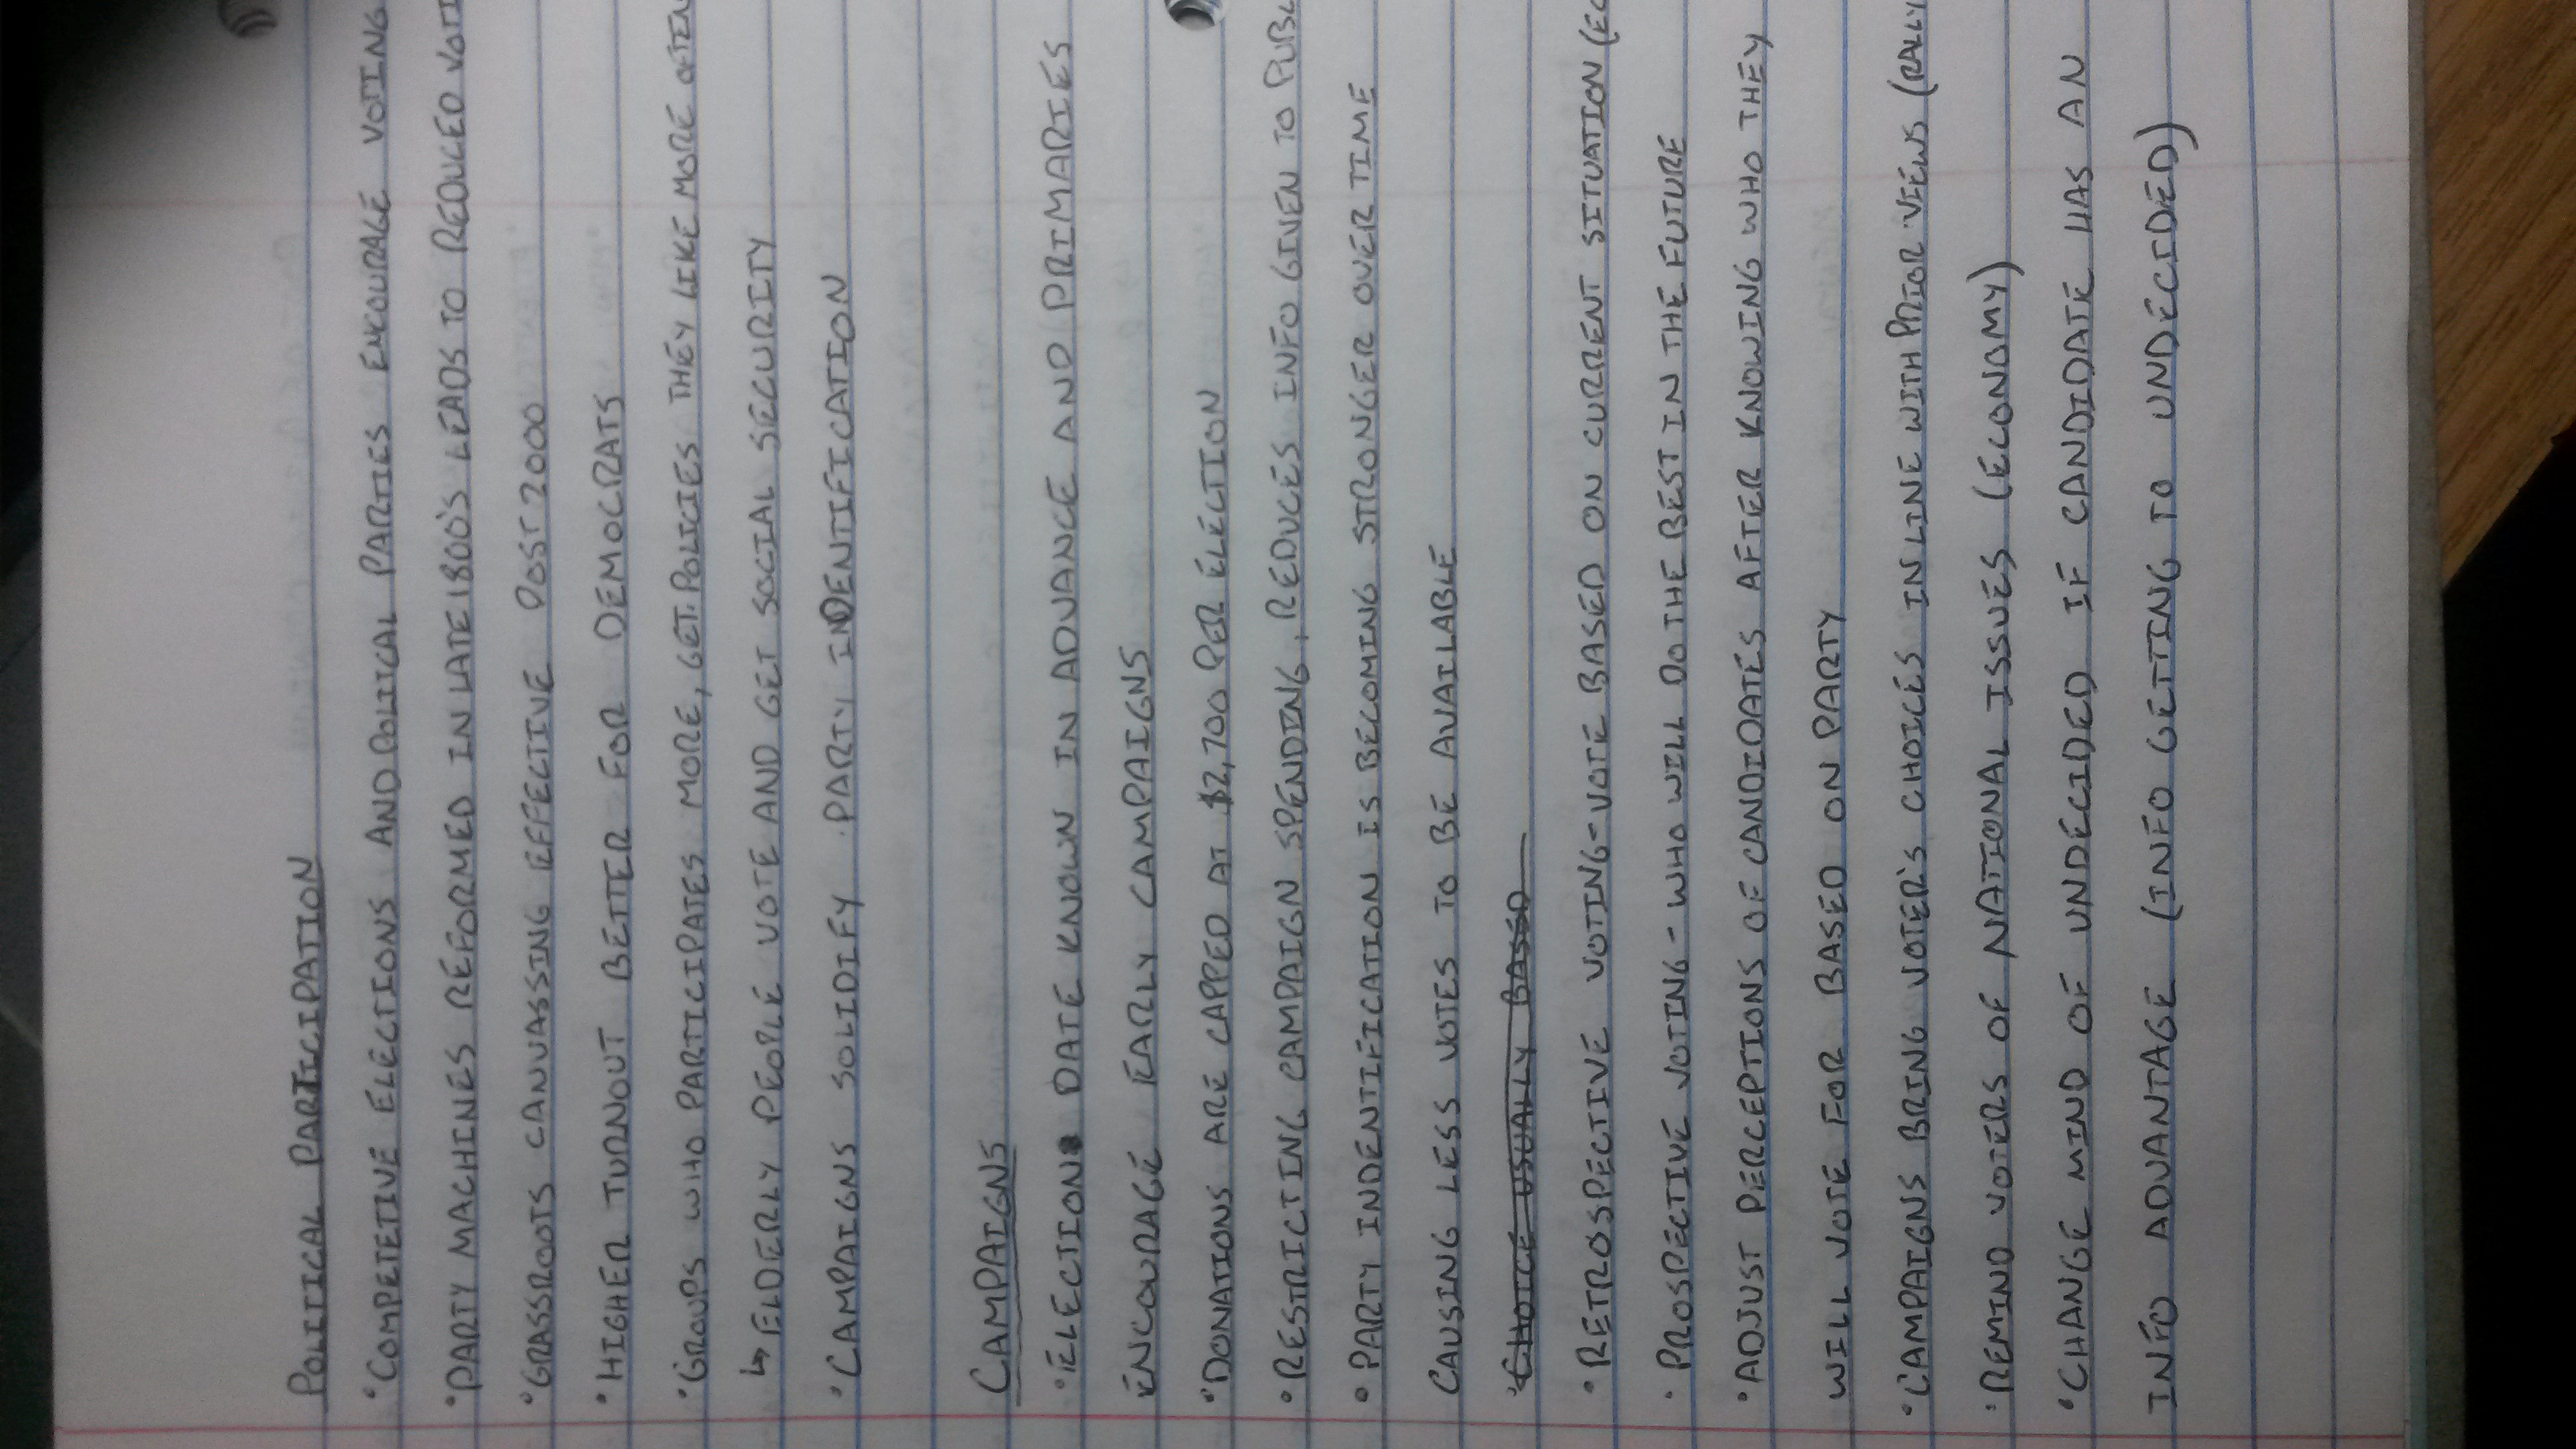 POLITICAL PARTICIPATION
•COMPETETIVE ELECTIONS AND POLITICAL PARTIES ENCOURAGE VOTING
•PARTY MACHINES REFORMED IN LATE 1800'S LEADS TO REDUCED VOTI
•GRASSROOTS CANVASSING EFFECTIVE POST 2000
•HIGHER TURNOUT BETTER FOR DEMOCRATS
•GROUPS WHO PARTICIPATES MORE, GET POLICIES THEY LIKE MORE OFTEN
↳ ELDERLY PEOPLE VOTE AND GET SOCIAL SECURITY
•CAMPAIGNS SOLIDIFY PARTY INDENTIFICATION
CAMPAIGNS
•ELECTION DATE KNOWN IN ADVANCE AND PRIMARIES
ENCOURAGE EARLY CAMPAIGNS
•DONATIONS ARE CAPPED AT $2,700 PER ELECTION
•RESTRICTING CAMPAIGN SPENDING, REDUCES INFO GIVEN TO PUBL
•PARTY INDENTIFICATION IS BECOMING STRONGER OVER TIME
CAUSING LESS VOTES TO BE AVAILABLE
•CHOICE USUALLY BASED
•RETROSPECTIVE VOTING-VOTE BASED ON CURRENT SITUATION (EC
•PROSPECTIVE VOTING - WHO WILL DO THE BEST IN THE FUTURE
•ADJUST PERCEPTIONS OF CANDIDATES AFTER KNOWING WHO THEY
WILL VOTE FOR BASED ON PARTY
•CAMPAIGNS BRING VOTER'S CHOICES IN LINE WITH PRIOR VIEWS (RALLY
•REMIND VOTERS OF NATIONAL ISSUES (ECONOMY)
•CHANGE MIND OF UNDECIDED IF CANDIDATE HAS AN
INFO ADVANTAGE (INFO GETTING TO UNDECIDED)